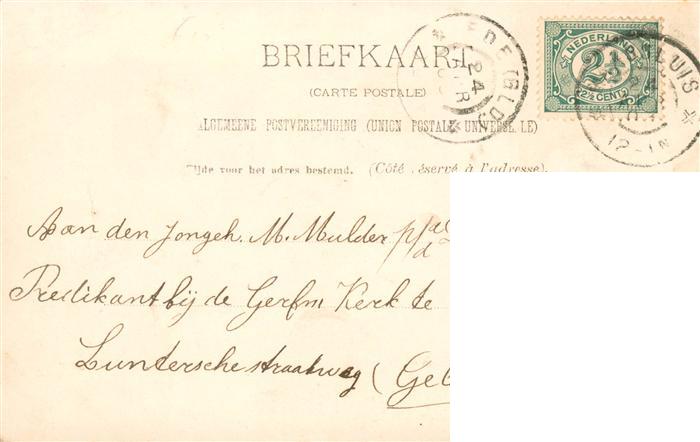 BRIEFKAART
(CARTE POSTALE)
ALGEMEENE POSTVEREENIGING (UNION POSTALE UNIVERSELLE)
Zijde voor het adres bestemd. (Côté réservé à l'adresse).
EDE (GLD)
24
NEDERLAND
2½
2½ CENT
LUIS
12-1N
Aan den Jongeh. M. Mulder p/a
Predikant bij de Gerfm Kerk te
Luntersche straatweg (Gel